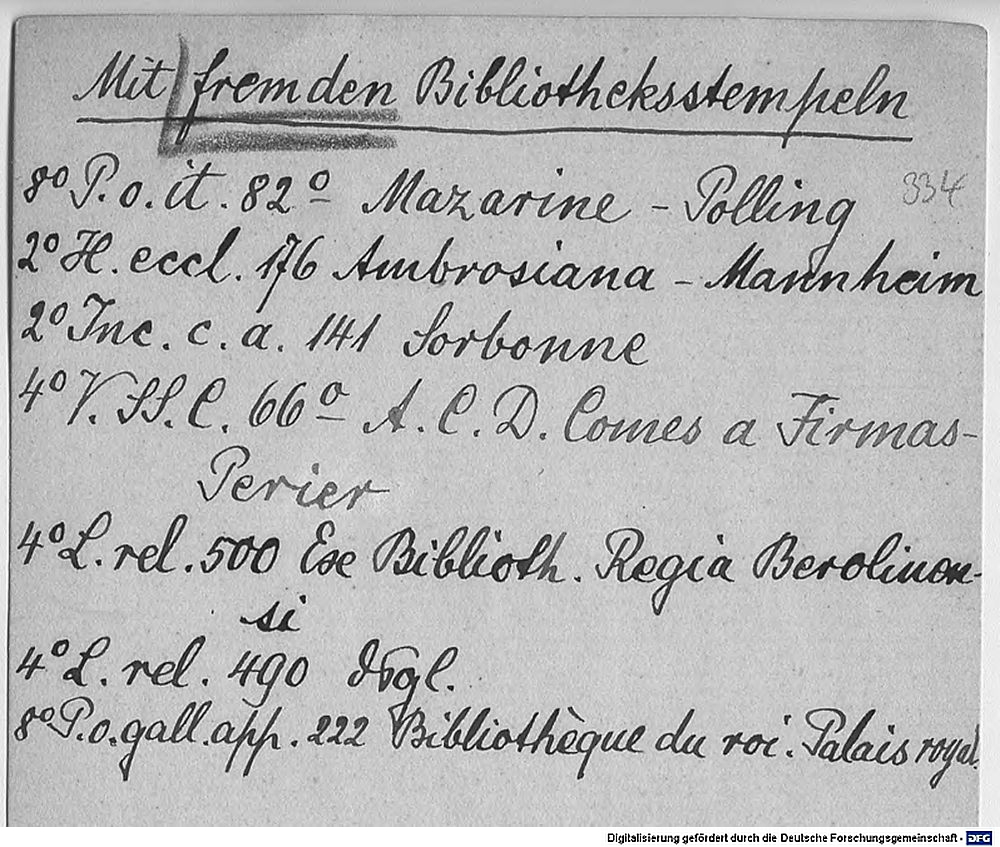 Mit fremden Bibliotheksstempeln
8° P. o. it. 82° Mazarine - Polling 334
2° H. eccl. 176 Ambrosiana - Mannheim
2° Inc. c. a. 141 Sorbonne
4° V. SS. C. 66° A. C. D. Comes a Firmas-
Perier
4° L. rel. 500 Exe Biblioth. Regia Berolinen-
si
4° L. rel. 490 dsgl.
8° P. o. gall. app. 222 Bibliothèque du roi. Palais royal.
Digitalisierung gefördert durch die Deutsche Forschungsgemeinschaft - DFG